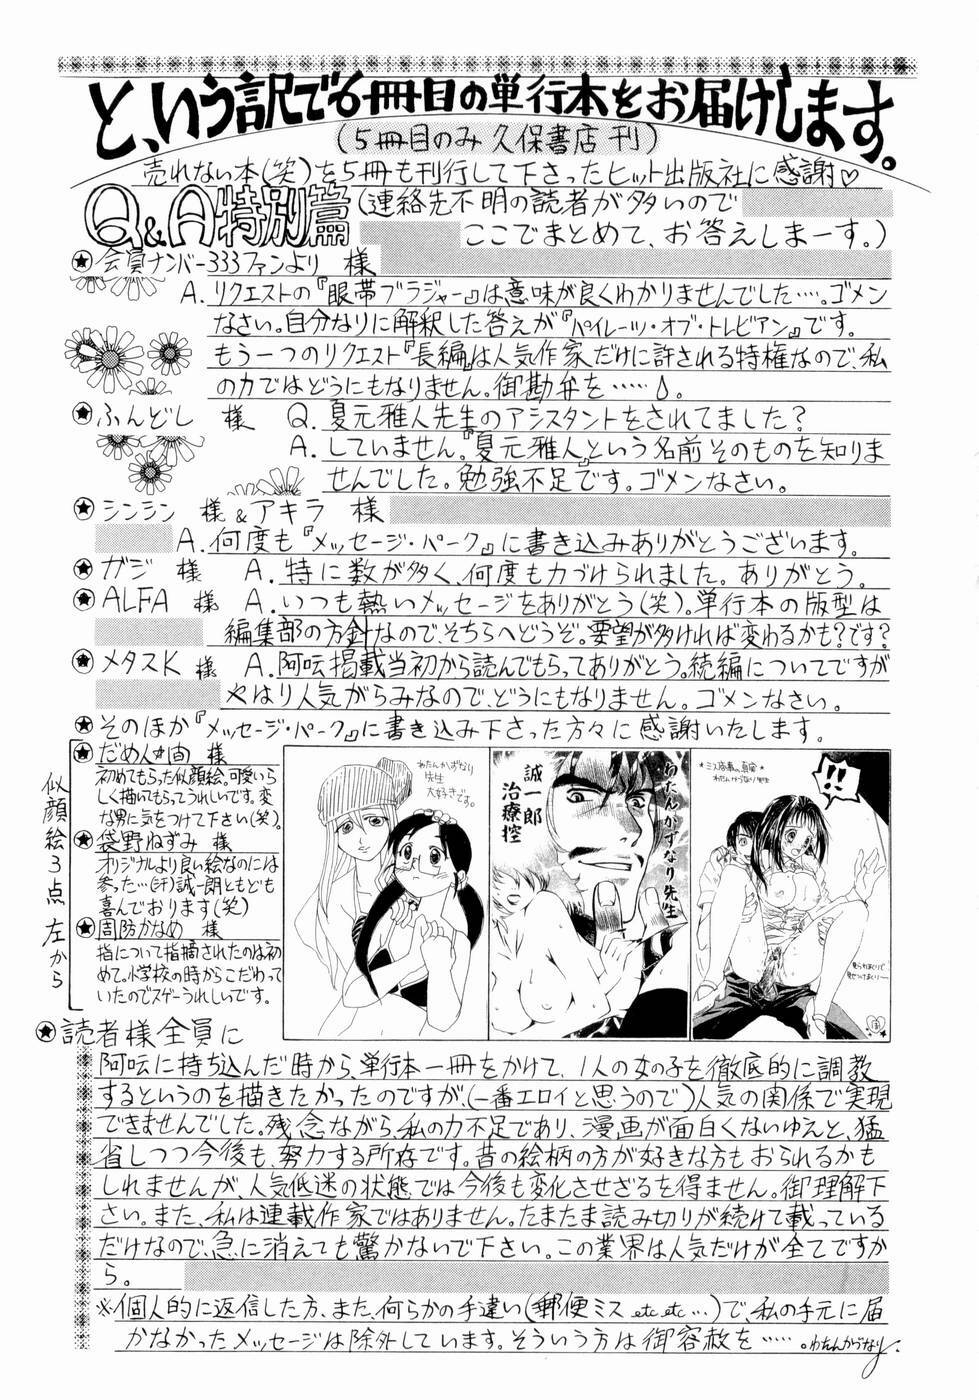 と、いう訳で6冊目の単行本をお届けします。
(5冊目のみ久保書店刊)
売れない本(笑)を5冊も刊行して下さったヒット出版社に感謝♡
Q&A特別篇(連絡先不明の読者が多いので
ここでまとめて、お答えしまーす。)
会員ナンバー333ファンより 様
A. リクエストの『眼帯ブラジャー』は意味が良くわかりませんでした…。ゴメン
なさい。自分なりに解釈した答えが『パイレーツ・オブ・トレビアン』です。
もう一つのリクエスト『長編』は人気作家だけに許される特権なので、私
の力ではどうにもなりません。御勘弁を……。
ふんどし 様 Q. 夏元雅人先生のアシスタントをされてました?
A. していません。『夏元雅人』という名前そのものを知りま
せんでした。勉強不足です。ゴメンなさい。
シンシン 様 & アキラ 様
A. 何度も『メッセージ・パーク』に書き込みありがとうございます。
ガジ 様 A. 特に数が多く、何度も力づけられました。ありがとう。
ALFA 様 A. いつも熱いメッセージをありがとう(笑)。単行本の版型は
編集部の方針なので、そちらへどうぞ。要望が多ければ変わるかも?です?
メタスK 様 A. 阿吽掲載当初から読んでもらってありがとう。続編についてですが
やはり人気がらみなので、どうにもなりません。ゴメンなさい。
そのほか『メッセージ・パーク』に書き込み下さった方々に感謝いたします。
似顔絵3点 左から
だめ人間 様
初めてもらった似顔絵。可愛いら
しく描いてもらってうれしいです。変
な男に気をつけて下さい(笑)。
袋野ねずみ 様
オリジナルより良い絵なのには
参った…(汗)誠一朗ともども
喜んでおります(笑)
周防かなめ 様
指について指摘されたのは初
めて。小学校の時からこだわっ
ていたのでスゲーうれしいです。
わたんかずなり
先生
大好きです。
誠一郎
治療控
わたんかずなり先生
わたんかずなり先生
!!
見られまくりで
見せつけまくりー
読者様全員に
阿吽に持ち込んだ時から、単行本一冊をかけて、1人の女の子を徹底的に調教
するというのを描きたかったのですが、(一番エロイと思うので)人気の関係で実現
できませんでした。残念ながら、私の力不足であり、漫画が面白くないゆえと、猛
省しつつ今後も、努力する所存です。昔の絵柄の方が好きな方もおられるかも
しれませんが、人気低迷の状態では今後も変化させざるを得ません。御理解下
さい。また、私は連載作家ではありません。たまたま読み切りが続けて載っている
だけなので、急に消えても驚かないで下さい。この業界は人気だけが全てですか
ら。
※個人的に返信した方、また、何らかの手違い(郵便ミス etc,etc…)で、私の手元に届
かなかったメッセージは除外しています。そういう方は御容赦を……。わたんかづなり.